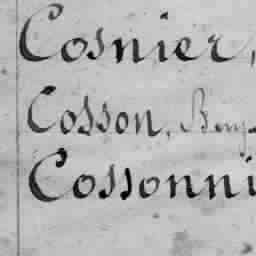 Cosnier,
Cosson, Benj
Cossonni